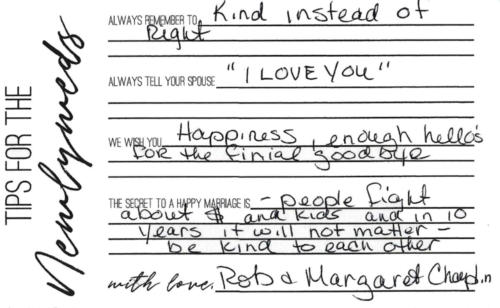 TIPS FOR THE
Newlyweds
ALWAYS REMEMBER TO Kind instead of
Right
ALWAYS TELL YOUR SPOUSE "I LOVE YOU"
WE WISH YOU Happiness, enough hello's
for the finial goodbye
THE SECRET TO A HAPPY MARRIAGE IS - people fight
about $ and kids and in 10
years it will not matter -
be kind to each other
with love, Rob & Margaret Chaplin